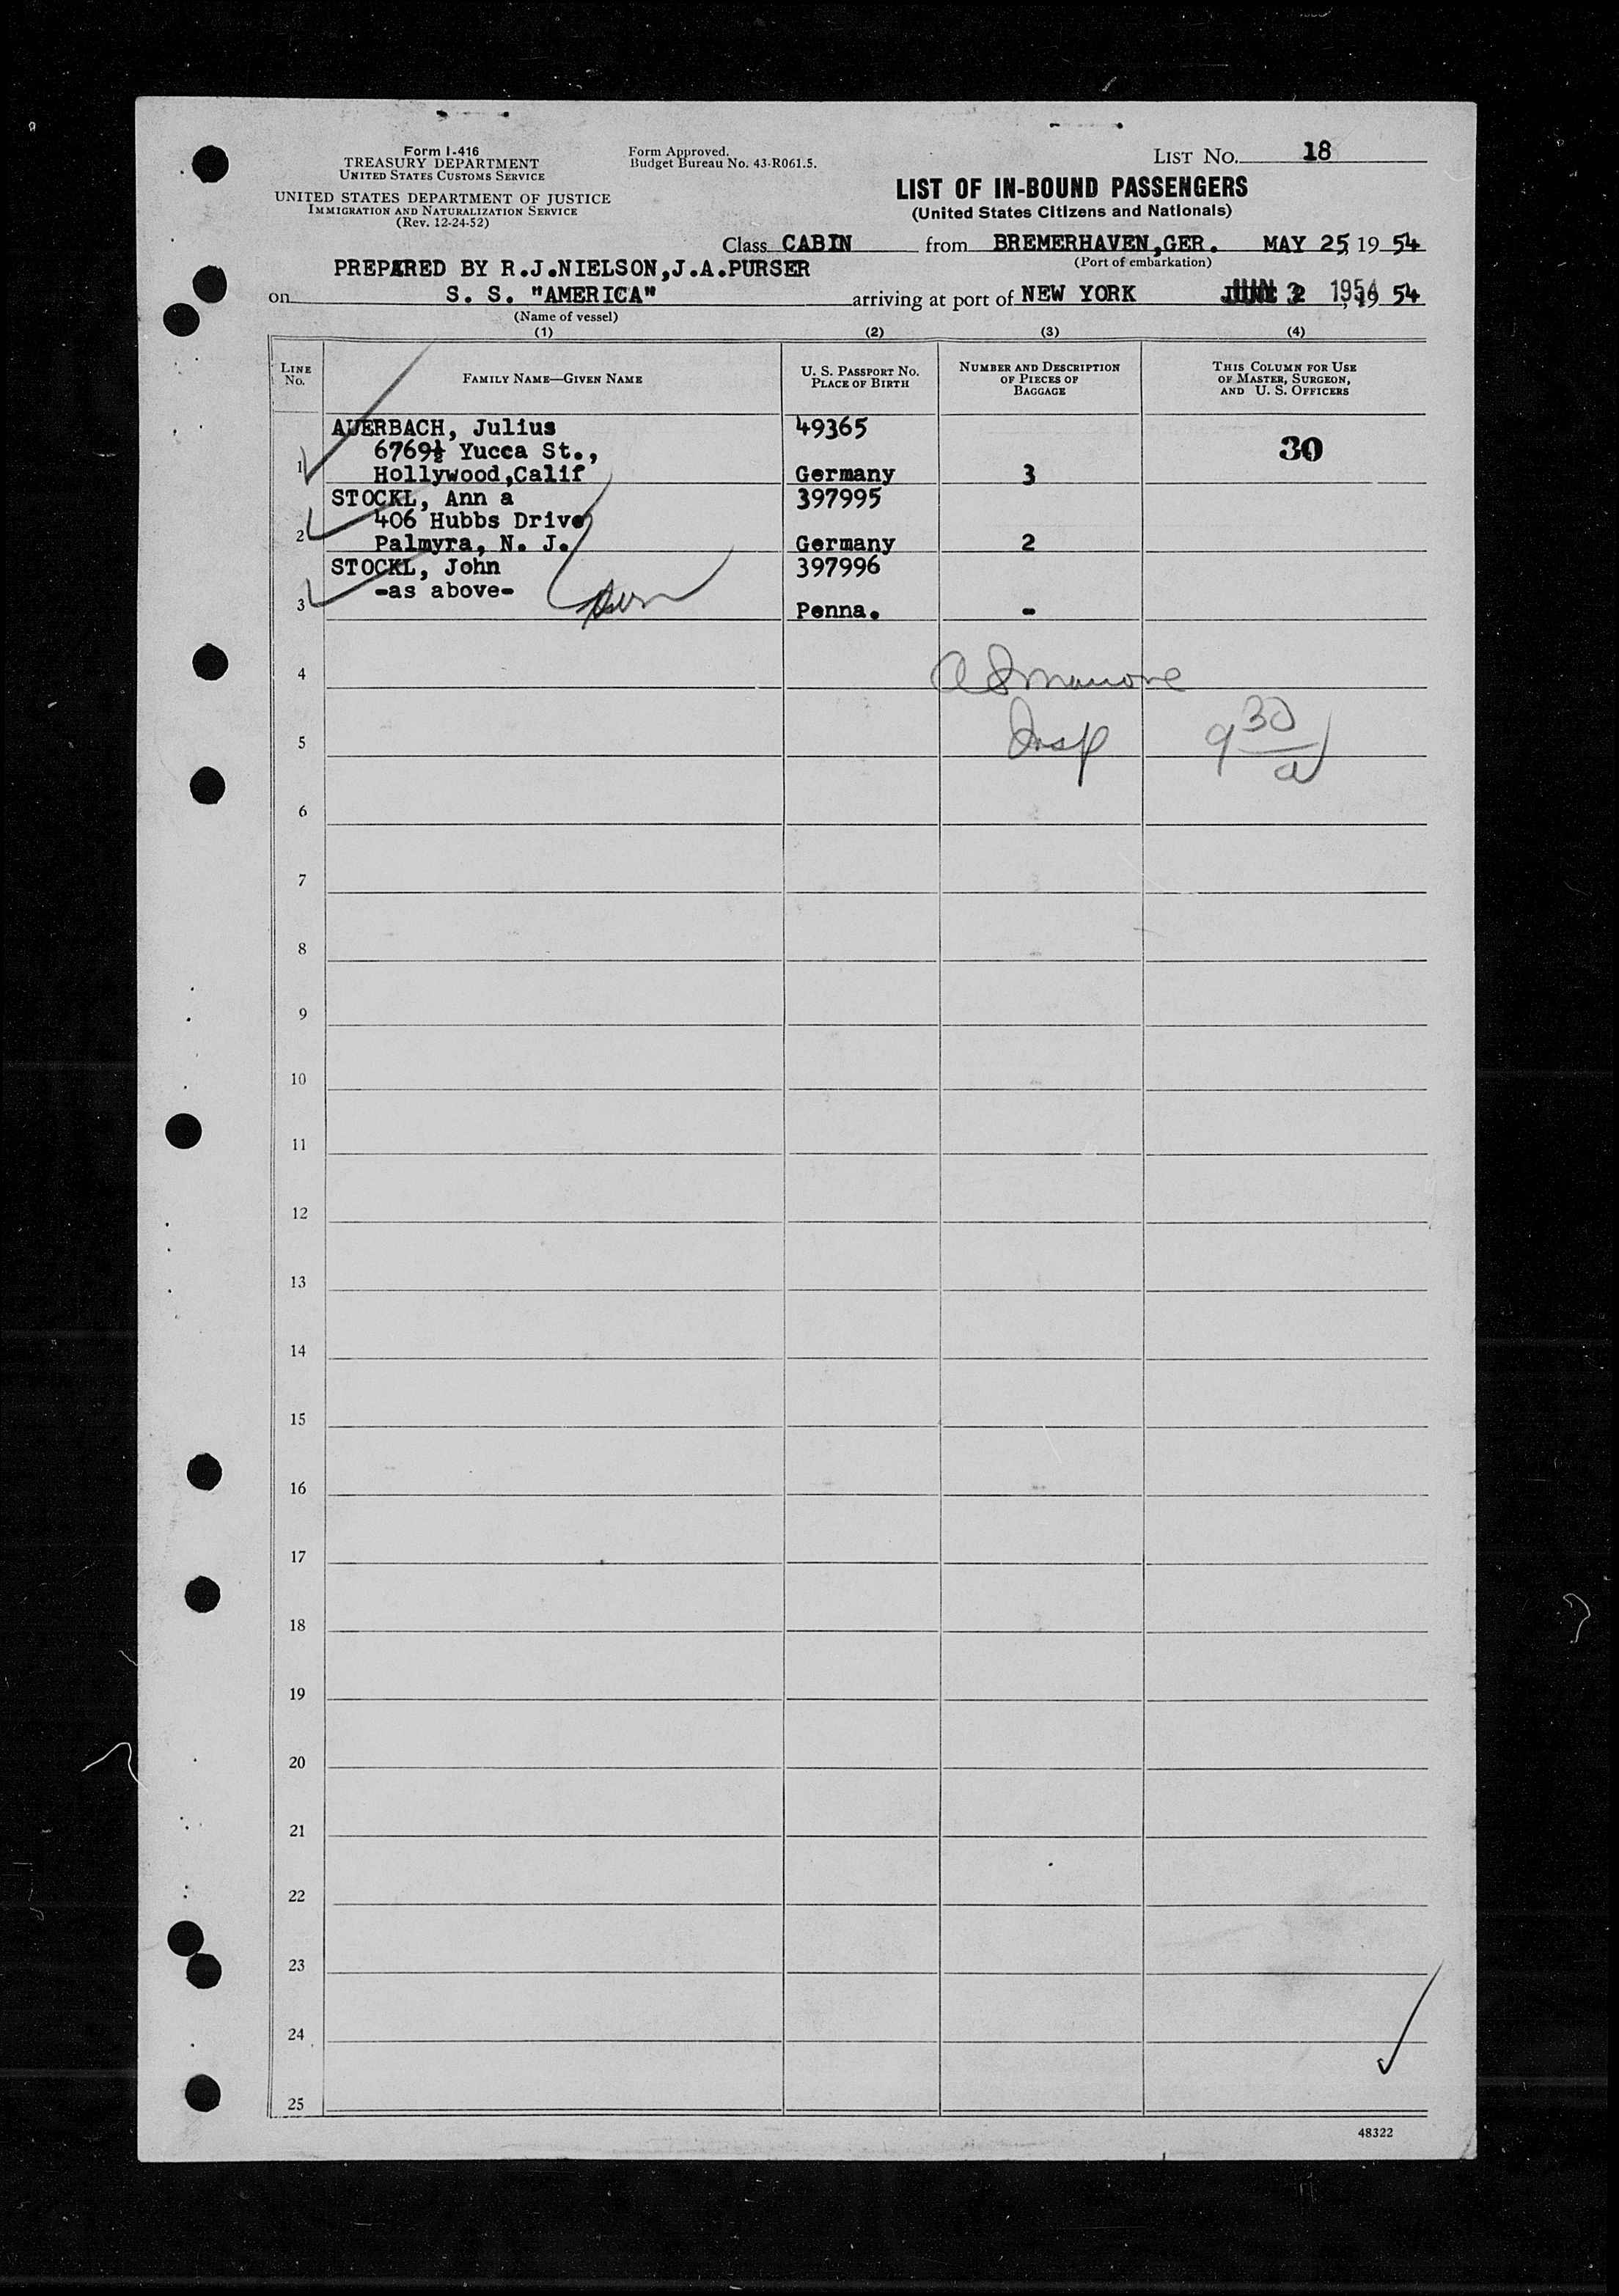 Form I-416
TREASURY DEPARTMENT
UNITED STATES CUSTOMS SERVICE
UNITED STATES DEPARTMENT OF JUSTICE
IMMIGRATION AND NATURALIZATION SERVICE
(Rev. 12-24-52)
Form Approved.
Budget Bureau No. 43-R061.5.
LIST NO. 18
LIST OF IN-BOUND PASSENGERS
(United States Citizens and Nationals)
Class CABIN from BREMERHAVEN,GER. MAY 25, 19 54
(Port of embarkation)
PREPARED BY R.J.NIELSON,J.A.PURSER
on S. S. "AMERICA" arriving at port of NEW YORK JUNE 2 1954, 19 54
(Name of vessel)
(1) (2) (3) (4)
LINE NO. FAMILY NAME—GIVEN NAME U. S. PASSPORT NO. PLACE OF BIRTH NUMBER AND DESCRIPTION OF PIECES OF BAGGAGE THIS COLUMN FOR USE OF MASTER, SURGEON, AND U. S. OFFICERS
AUERBACH, Julius 49365
6769½ Yucca St., 30
1 Hollywood,Calif Germany 3
STOCKL, Ann a 397995
406 Hubbs Drive
2 Palmyra, N. J. Germany 2
STOCKL, John 397996
-as above-
3 Penna. -
4
5 Insp 9 30 a
6
7
8
9
10
11
12
13
14
15
16
17
18
19
20
21
22
23
24
25
48322